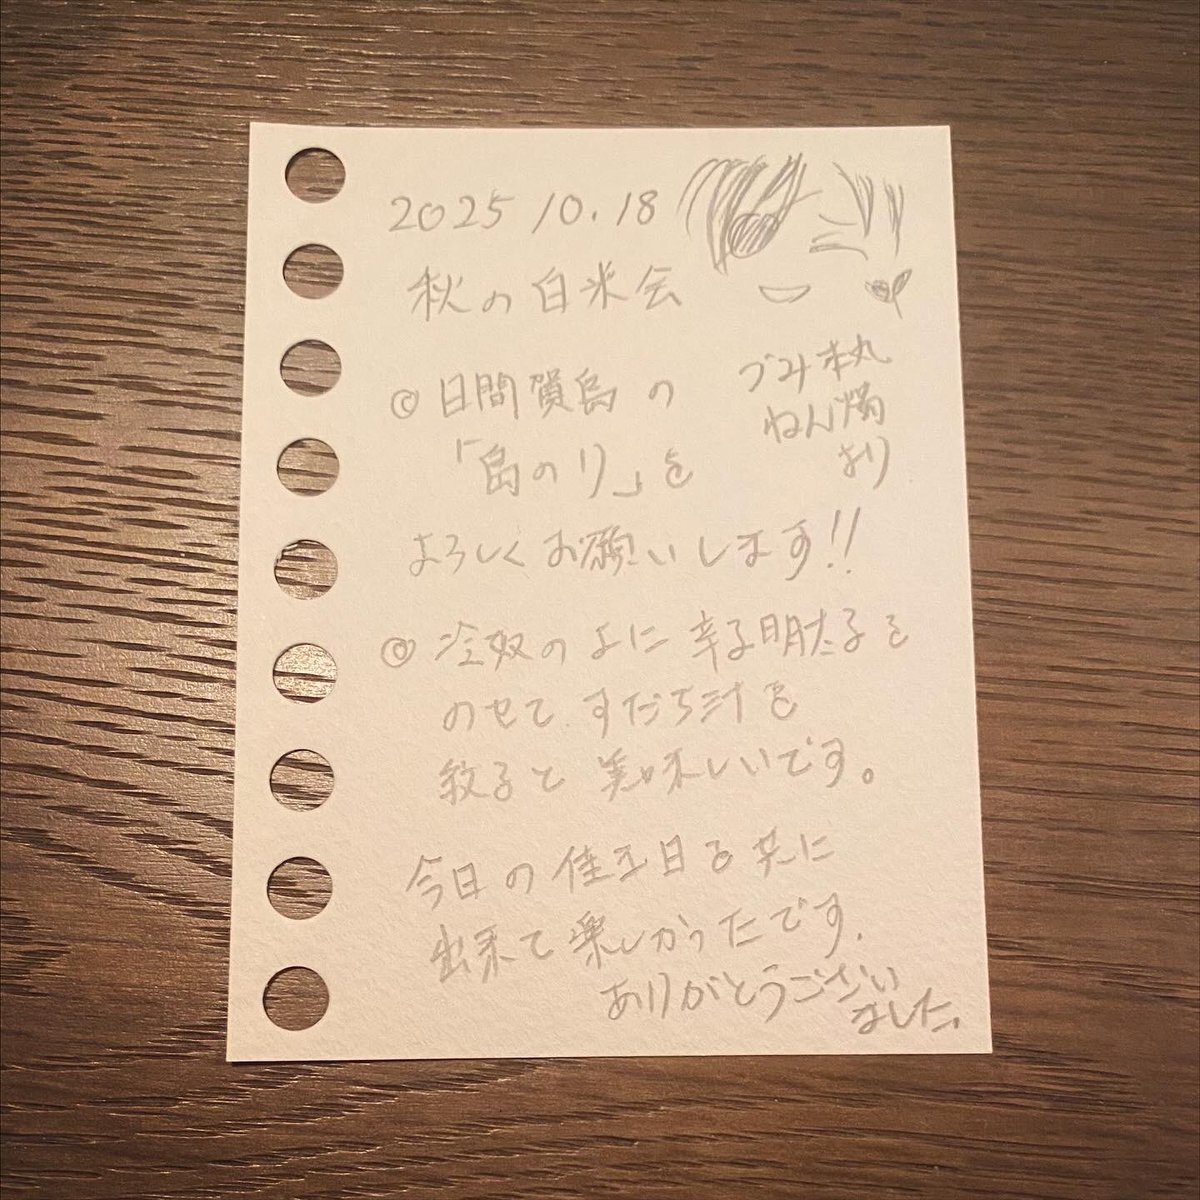 2025 10.18
秋の白米会
づみ本丸
ねん燭
より
◎日間賀島の
「島のり」を
よろしくお願いします!!
◎冷奴の上に辛子明太子を
のせて、すだち汁を
絞ると美味しいです。
今日の佳き日を共に
出来て楽しかったです。
ありがとうござい
ました。